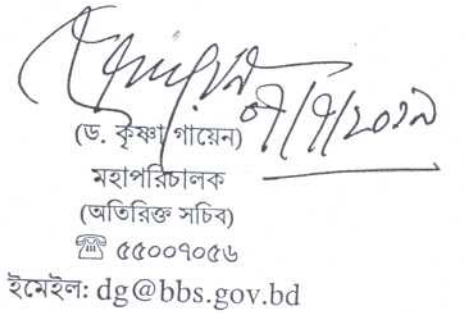 (ড. কৃষ্ণা গায়েন)
মহাপরিচালক
(অতিরিক্ত সচিব)
☎ ৫৫০০৭০৫৬
ইমেইল: dg@bbs.gov.bd